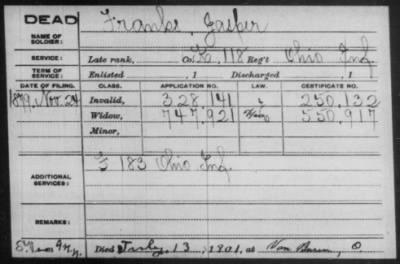 DEAD
NAME OF SOLDIER: Franks, Jasper
SERVICE: Late rank, Co. K, 118 Reg't Ohio Inf.
TERM OF SERVICE: Enlisted , 1 Discharged , 1
DATE OF FILING. CLASS. APPLICATION NO. LAW. CERTIFICATE NO.
1879, Nov. 24 Invalid, 328.141 250.132
Widow, 747.921 550.917
Minor,
ADDITIONAL SERVICES: F 183 Ohio Inf.
REMARKS:
Died July 13, 1901, at Van Buren, O.